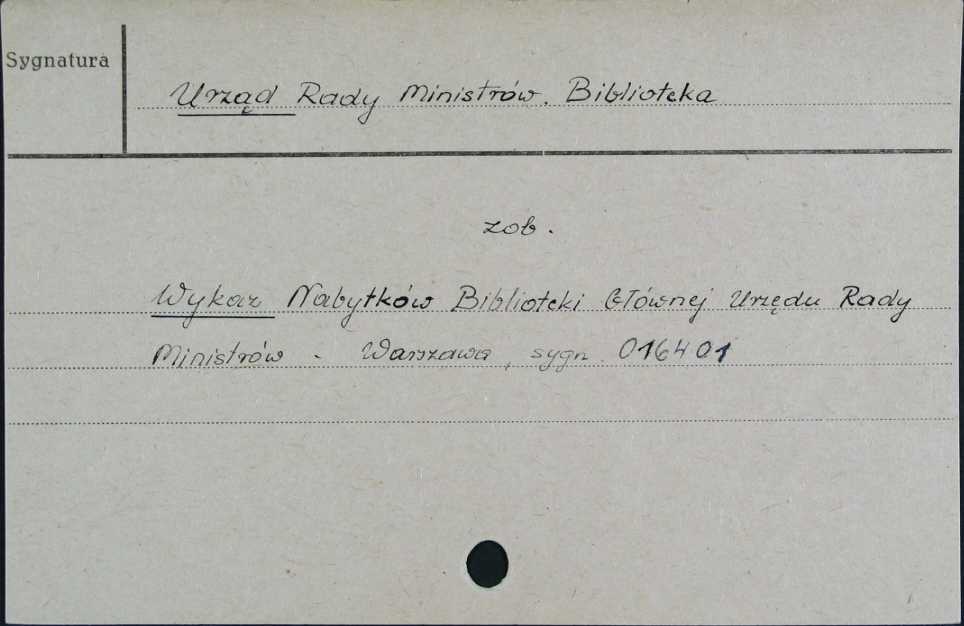 Sygnatura
Urząd Rady Ministrów. Biblioteka
zob.
Wykaz Nabytków Biblioteki Głównej Urzędu Rady
Ministrów - Warszawa, sygn. 016401